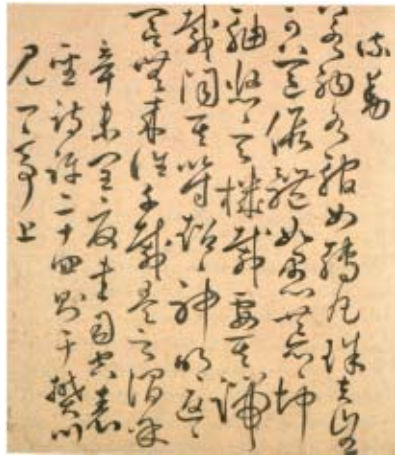 流動
若納水輨如轉丸珠夫豈
可道假體如愚荒荒坤
軸悠悠天樞載要其端
載聞其符超超神明返返
冥無來往千載是之謂乎
辛未夏書司空表
聖詩評二十四則于樊川
見一亭上